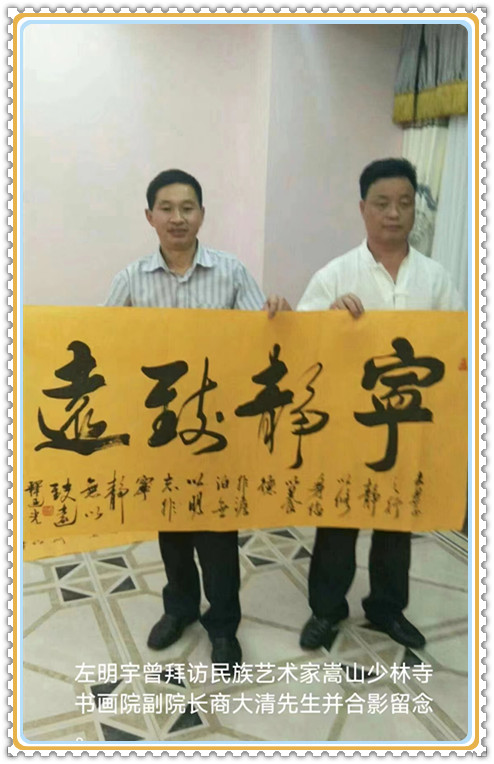 寧靜致遠
夫君子
之行
靜
以修
身儉
以養
德
非澹
泊無
以明
志非
寧
靜
無以
致遠
左明宇曾拜访民族艺术家嵩山少林寺
书画院副院长商大清先生并合影留念
。